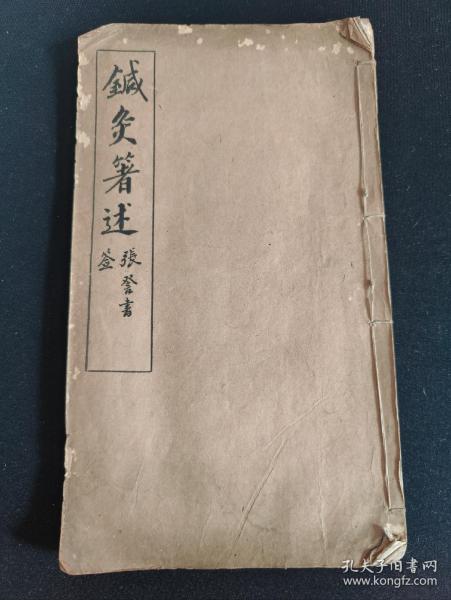 鍼灸箸述
張登書
签
孔夫子旧书网
www.kongfz.com